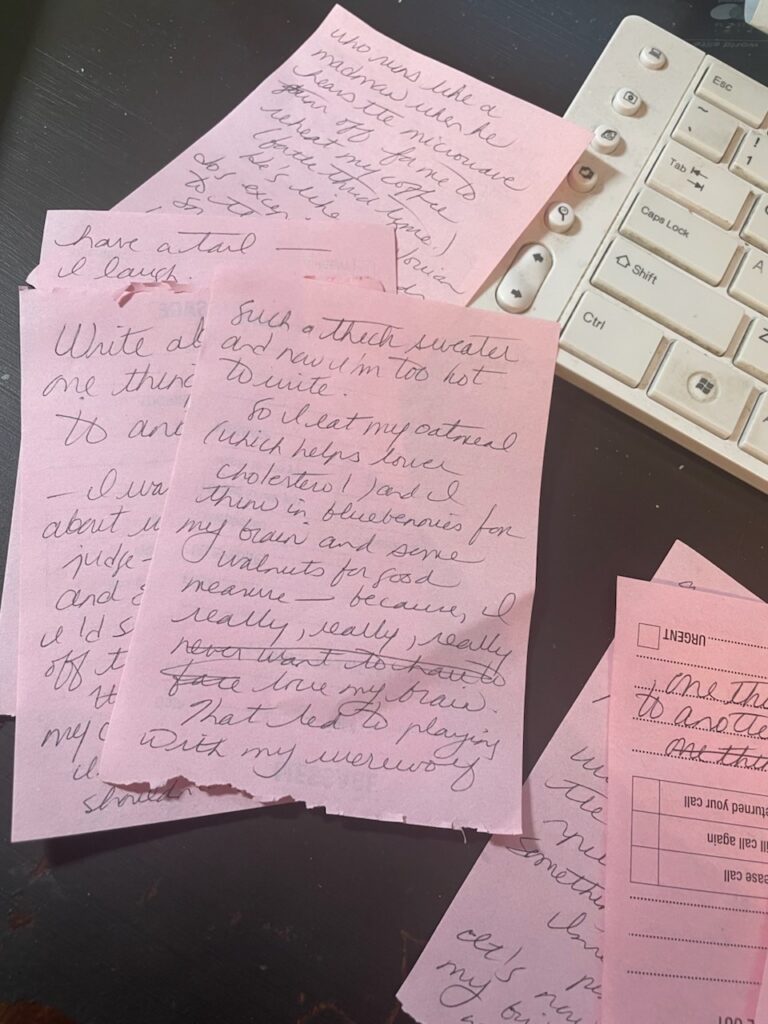 who runs like a
madman when he
hears the microwave
turn off for me to
reheat my coffee
(for the third time.)
He's like
have a tail —
I laugh.
Write ab
one thing
to ano
— I wa
about w
judge —
and
I'd s
off t
th
my c
shouldn
Such a thick sweater
and now I'm too hot
to write.
So I eat my oatmeal
(which helps lower
cholesterol) and I
throw in blueberries for
my brain and some
walnuts for good
measure — because, I
really, really, really
never want to have to
face love my brain.
That led to playing
with my werewolf
URGENT
one thi
to anothe
one thin
eturned your call
ill call again
ease call
E OUT
the
somethin
let's now
my br
Esc
~
`
!
1
Tab
Caps Lock
A
Shift
Z
Ctrl